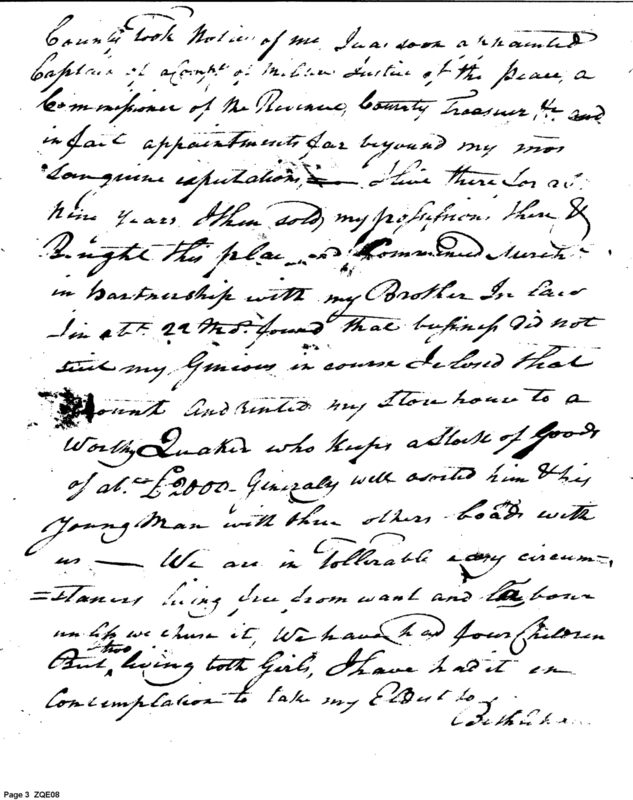 County took Notice of me I was soon appointed
Captain of a Compy of Militia Justice of the peace, a
Commissioner of the Revenue, County Treasurer, &c and
in fact appointments far beyound my mos
Sanguine expectations, I live there for
Nine Years I then sold my possessions there &
Bought this place and Commenced
in partnership with my Brother In Law
I in abt 22 Mos. found that business did not
suit my Genious in course I closed that
and rented my store house to a
Worthy Quaker who keeps a Stock of Goods
of abt £2000 Generaly well asorted him & his
Young Man with three others boads with
us — We are in Tollerable easy circum=
=stances living free from want and labour
unless we chuse it, We have had four Children
But two living both Girls, I have had it in
Contemplation to take my Eldest to
Page 3 ZQE08